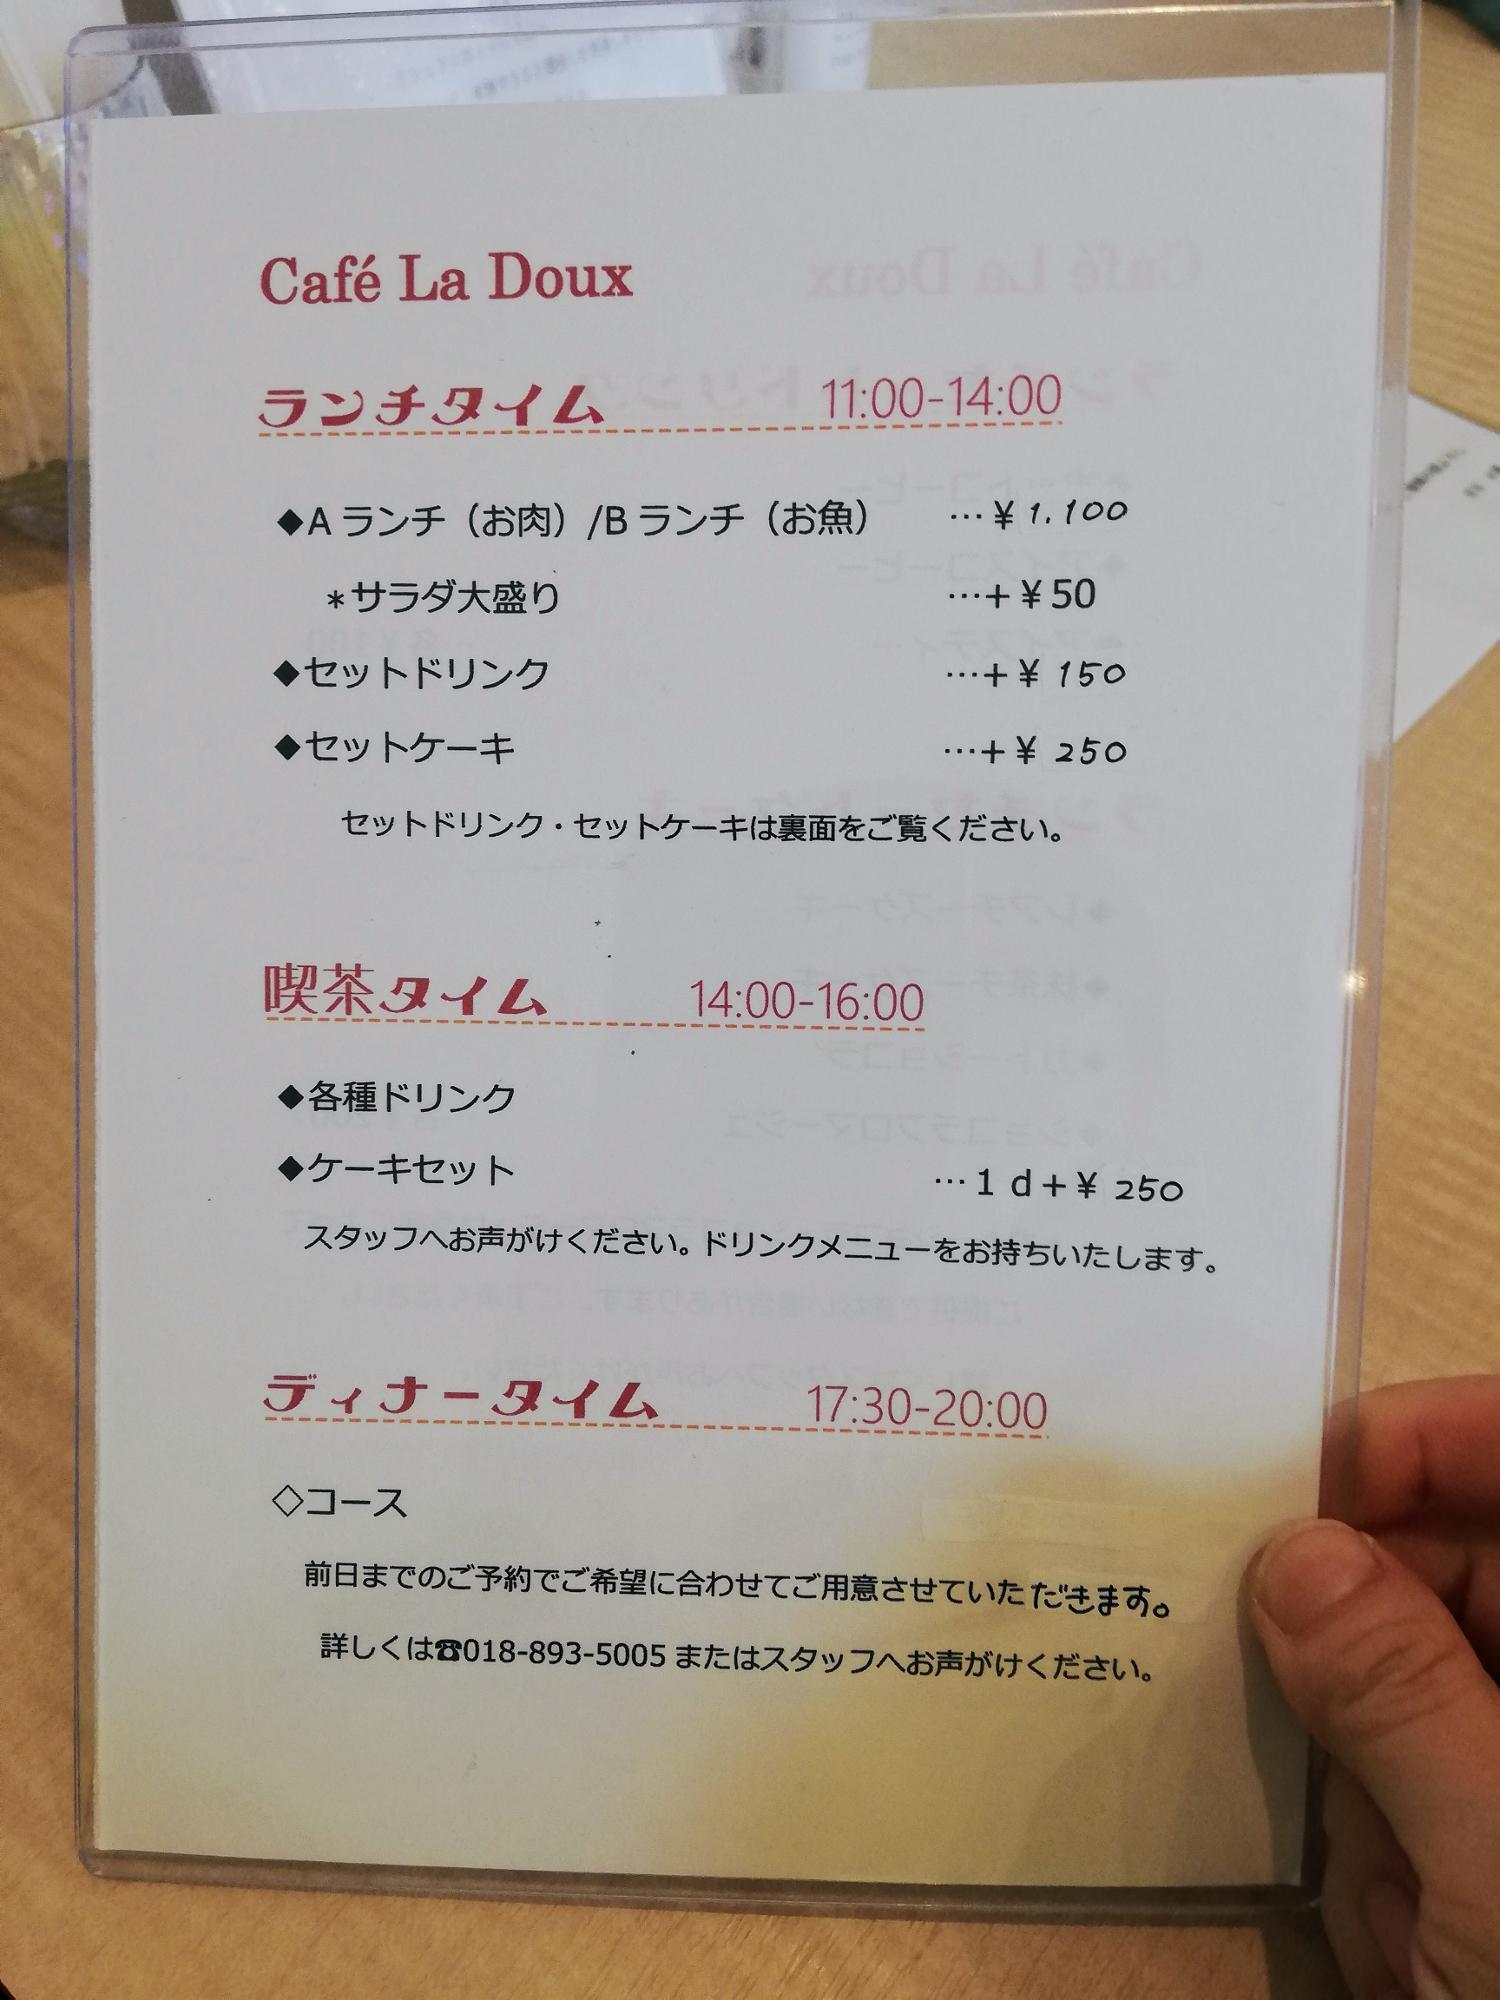 Café La Doux
ランチタイム 11:00-14:00
◆A ランチ（お肉）/B ランチ（お魚） …¥1.100
＊サラダ大盛り …+¥50
◆セットドリンク …+¥150
◆セットケーキ …+¥250
セットドリンク・セットケーキは裏面をご覧ください。
喫茶タイム 14:00-16:00
◆各種ドリンク
◆ケーキセット …1 d+¥250
スタッフへお声がけください。ドリンクメニューをお持ちいたします。
ディナータイム 17:30-20:00
◇コース
前日までのご予約でご希望に合わせてご用意させていただきます。
詳しくは☎018-893-5005 またはスタッフへお声がけください。